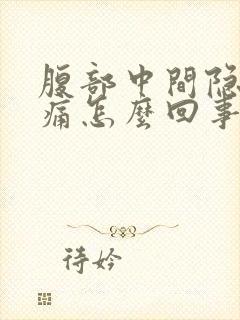 腹部中間隐
痛怎麼回事
待妗